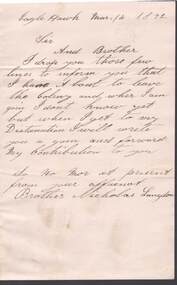 Eagle Hawk Mar. 12 1892
Sir
And Brother
I drop you those few
lines to inform you that
I have A bout to leave
the Coliny and wher I am
going I dont know yet
but when I get to my
Destination I will wrete
you a gain and forward
My Contribution to you
So No Mor at present
from your affinant
Brother Nicholas